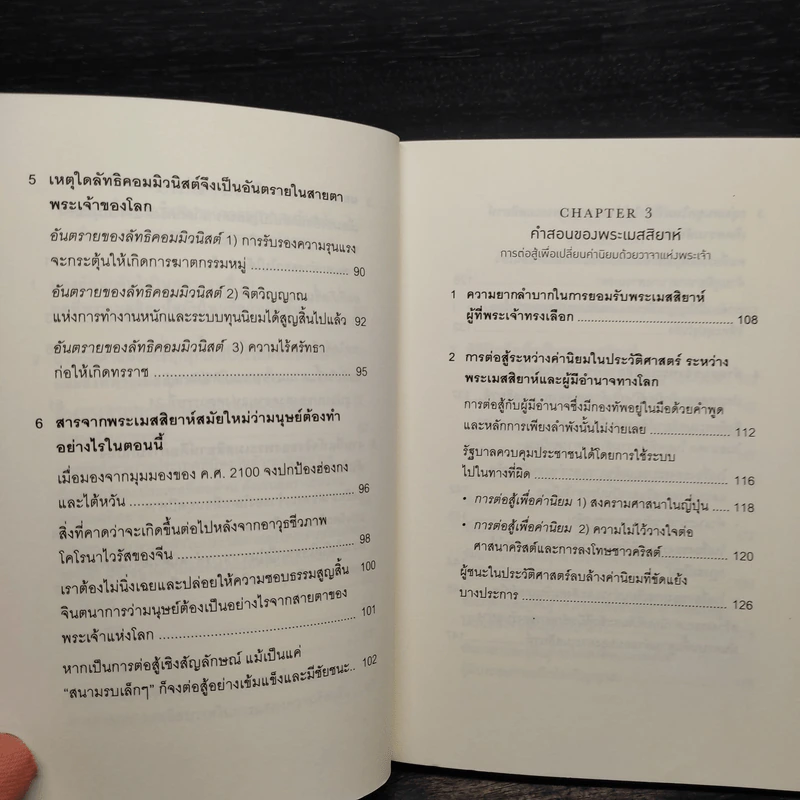 5 เหตุใดลัทธิคอมมิวนิสต์จึงเป็นอันตรายในสายตา
พระเจ้าของโลก
อันตรายของลัทธิคอมมิวนิสต์ 1) การรับรองความรุนแรง
จะกระตุ้นให้เกิดการฆาตกรรมหมู่ ........................ 90
อันตรายของลัทธิคอมมิวนิสต์ 2) จิตวิญญาณ
แห่งการทำงานหนักและระบบทุนนิยมได้สูญสิ้นไปแล้ว 92
อันตรายของลัทธิคอมมิวนิสต์ 3) ความไร้ศรัทธา
ก่อให้เกิดทรราช ........................................ 95
6 สารจากพระเมสสิยาห์สมัยใหม่ว่ามนุษย์ต้องทำ
อย่างไรในตอนนี้
เมื่อมองจากมุมมองของ ค.ศ. 2100 จงปกป้องฮ่องกง
และไต้หวัน ............................................. 96
สิ่งที่คาดว่าจะเกิดขึ้นต่อไปหลังจากอาวุธชีวภาพ
โคโรนาไวรัสของจีน ...................................... 98
เราต้องไม่นิ่งเฉยและปล่อยให้ความชอบธรรมสูญสิ้น 100
จินตนาการว่ามนุษย์ต้องเป็นอย่างไรจากสายตาของ
พระเจ้าแห่งโลก ......................................... 101
หากเป็นการต่อสู้เชิงสัญลักษณ์ แม้เป็นแค่
“สนามรบเล็กๆ” ก็จงต่อสู้อย่างเข้มแข็งและมีชัยชนะ.. 102
CHAPTER 3
คำสอนของพระเมสสิยาห์
การต่อสู้เพื่อเปลี่ยนค่านิยมด้วยวาจาแห่งพระเจ้า
1 ความยากลำบากในการยอมรับพระเมสสิยาห์
ผู้ที่พระเจ้าทรงเลือก ................................... 108
2 การต่อสู้ระหว่างค่านิยมในประวัติศาสตร์ ระหว่าง
พระเมสสิยาห์และผู้มีอำนาจทางโลก
การต่อสู้กับผู้มีอำนาจซึ่งมีกองทัพอยู่ในมือด้วยคำพูด
และหลักการเพียงลำพังนั้นไม่ง่ายเลย .................. 112
รัฐบาลควบคุมประชาชนได้โดยการใช้ระบบ
ไปในทางที่ผิด .......................................... 116
• การต่อสู้เพื่อค่านิยม 1) สงครามศาสนาในญี่ปุ่น ..... 118
• การต่อสู้เพื่อค่านิยม 2) ความไม่ไว้วางใจต่อ
ศาสนาคริสต์และการลงโทษชาวคริสต์................... 120
ผู้ชนะในประวัติศาสตร์ลบล้างค่านิยมที่ขัดแย้ง
บางประการ ............................................. 126